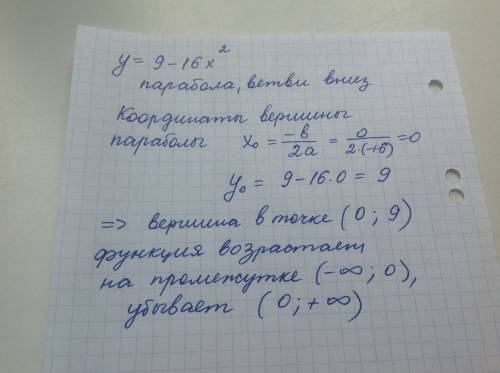 y = 9 – 16x²
парабола, ветви вниз
Координаты вершины
параболы x₀ = -в/2a = 0/2·(-16) = 0
y₀ = 9 – 16·0 = 9
=> вершина в точке (0; 9)
функция возрастает
на промежутке (-∞; 0),
убывает (0; +∞)